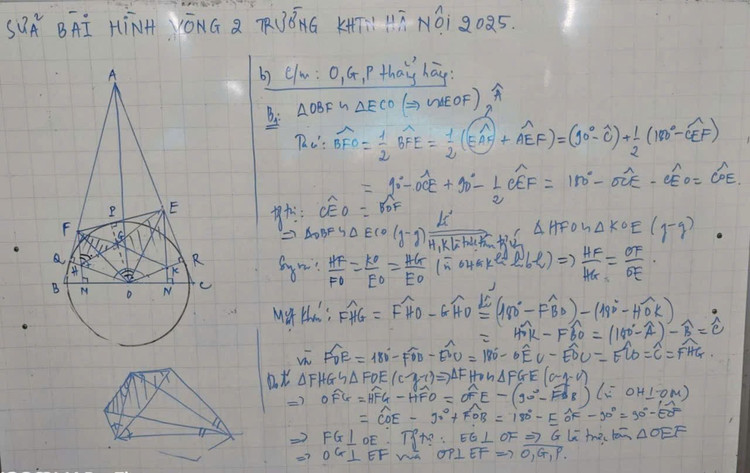 SỬA BÀI HÌNH VÒNG 2 TRƯỜNG KHTN HÀ NỘI 2025.
b) C/m: O, G, P thẳng hàng:
B₁: ΔOBF ∽ ΔECO (⇒ ∽ΔEOF) Â
BFO = 1/2 BFE = 1/2 (EAF + AEF) = (90° - Ĉ) + 1/2 (180° - CEF)
= 90° - OCE + 90° - 1/2 CEF = 180° - OCE - CEO = COE.
Tg tự: CEO = BOF
⇒ ΔOBF ∽ ΔECO (g-g) H, K là ΔHFO ∽ ΔKOE (g-g)
Suy ra: HF/FO = KO/EO = HG/EO (vì OHGK là hbh) ⇒ HF/HG = OF/OE.
Mặt khác: FHG = FHO - GHO = (180° - FBO) - (180° - HOK)
= HOK - FBO = (180° - Â) - B̂ = Ĉ
và FOE = 180° - FOB - EOC = 180° - OEC - EOC = ECO = Ĉ = FHG.
Do đó ΔFHG ∽ ΔFOE (c-g-c) ⇒ ΔFHO ∽ ΔFGE (c-g-c)
⇒ OFG = HFG - HFO = OFE - (90° - FOB) (vì OH⊥OM)
= COE - 90° + FOB = 180° - EOF - 90° = 90° - EOF
⇒ FG ⊥ OE. Tg tự: EG ⊥ OF ⇒ G là trực tâm ΔOEF
⇒ OG ⊥ EF mà OP ⊥ EF ⇒ O, G, P.
A
P
E
F
G
Q
H
K
R
B
M
O
N
C